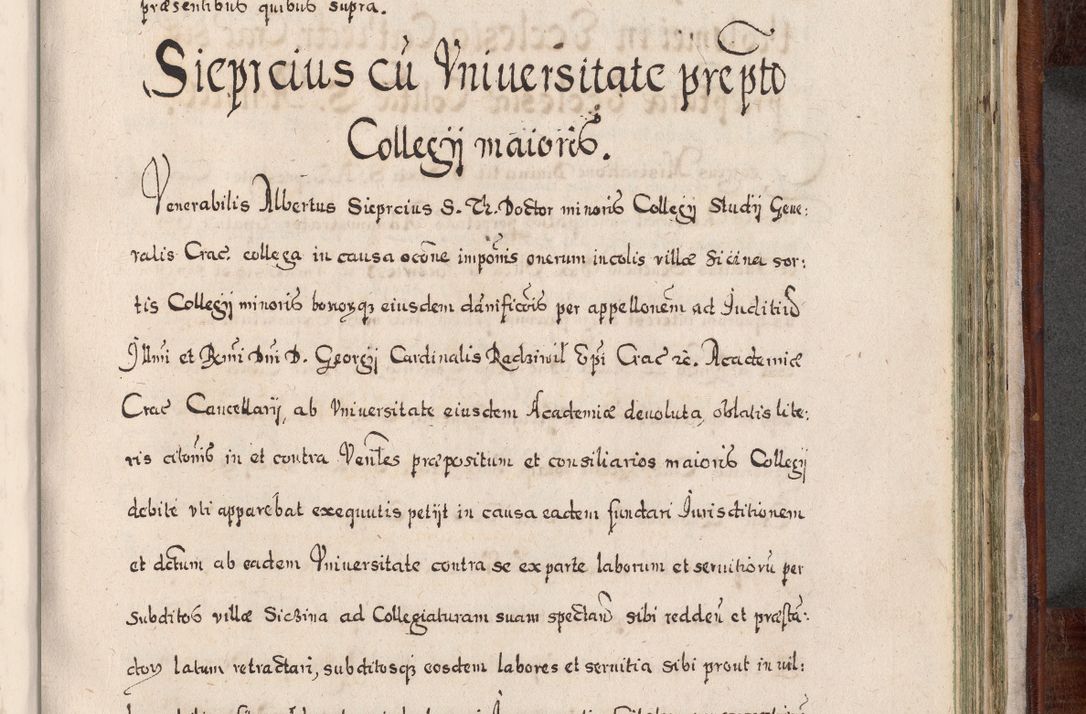 præsentibus quibus supra.
Sieprcius cũ Vniuersitate prępto
Collegij maioris.
Venerabilis Albertus Sieprcius S. Th. Doctor minoris Collegij Studij Gene:
ralis Crac. collega in causa ocõne impõnis onerum incolis villæ Sicina sor:
tis Collegij minoris bonorq₃ eiusdem dãnificõis per appellonẽm ad Iuditiũ
Illmi et Rmi Dni D. Georgij Cardinalis Radziwił Epi Crac rc. Academiæ
Crac Cancellarij, ab Vniuersitate eiusdem Academiæ deuoluta, oblatis lite:
ris citõnis in et contra Venles præpositum et consiliarios maioris Collegij
debite vti apparebat exequutis petijt in causa eadem fundari Iurisditionem
et dctum ab eadem Vniuersitate contra se ex parte laborum et seruitiorũ per
subditos villæ Siczina ad Collegiaturam suam spectañ sibi reddeñ et præstã:
dor latum retractari, subditosq₃ eosdem labores et seruitia sibi prout in vil: